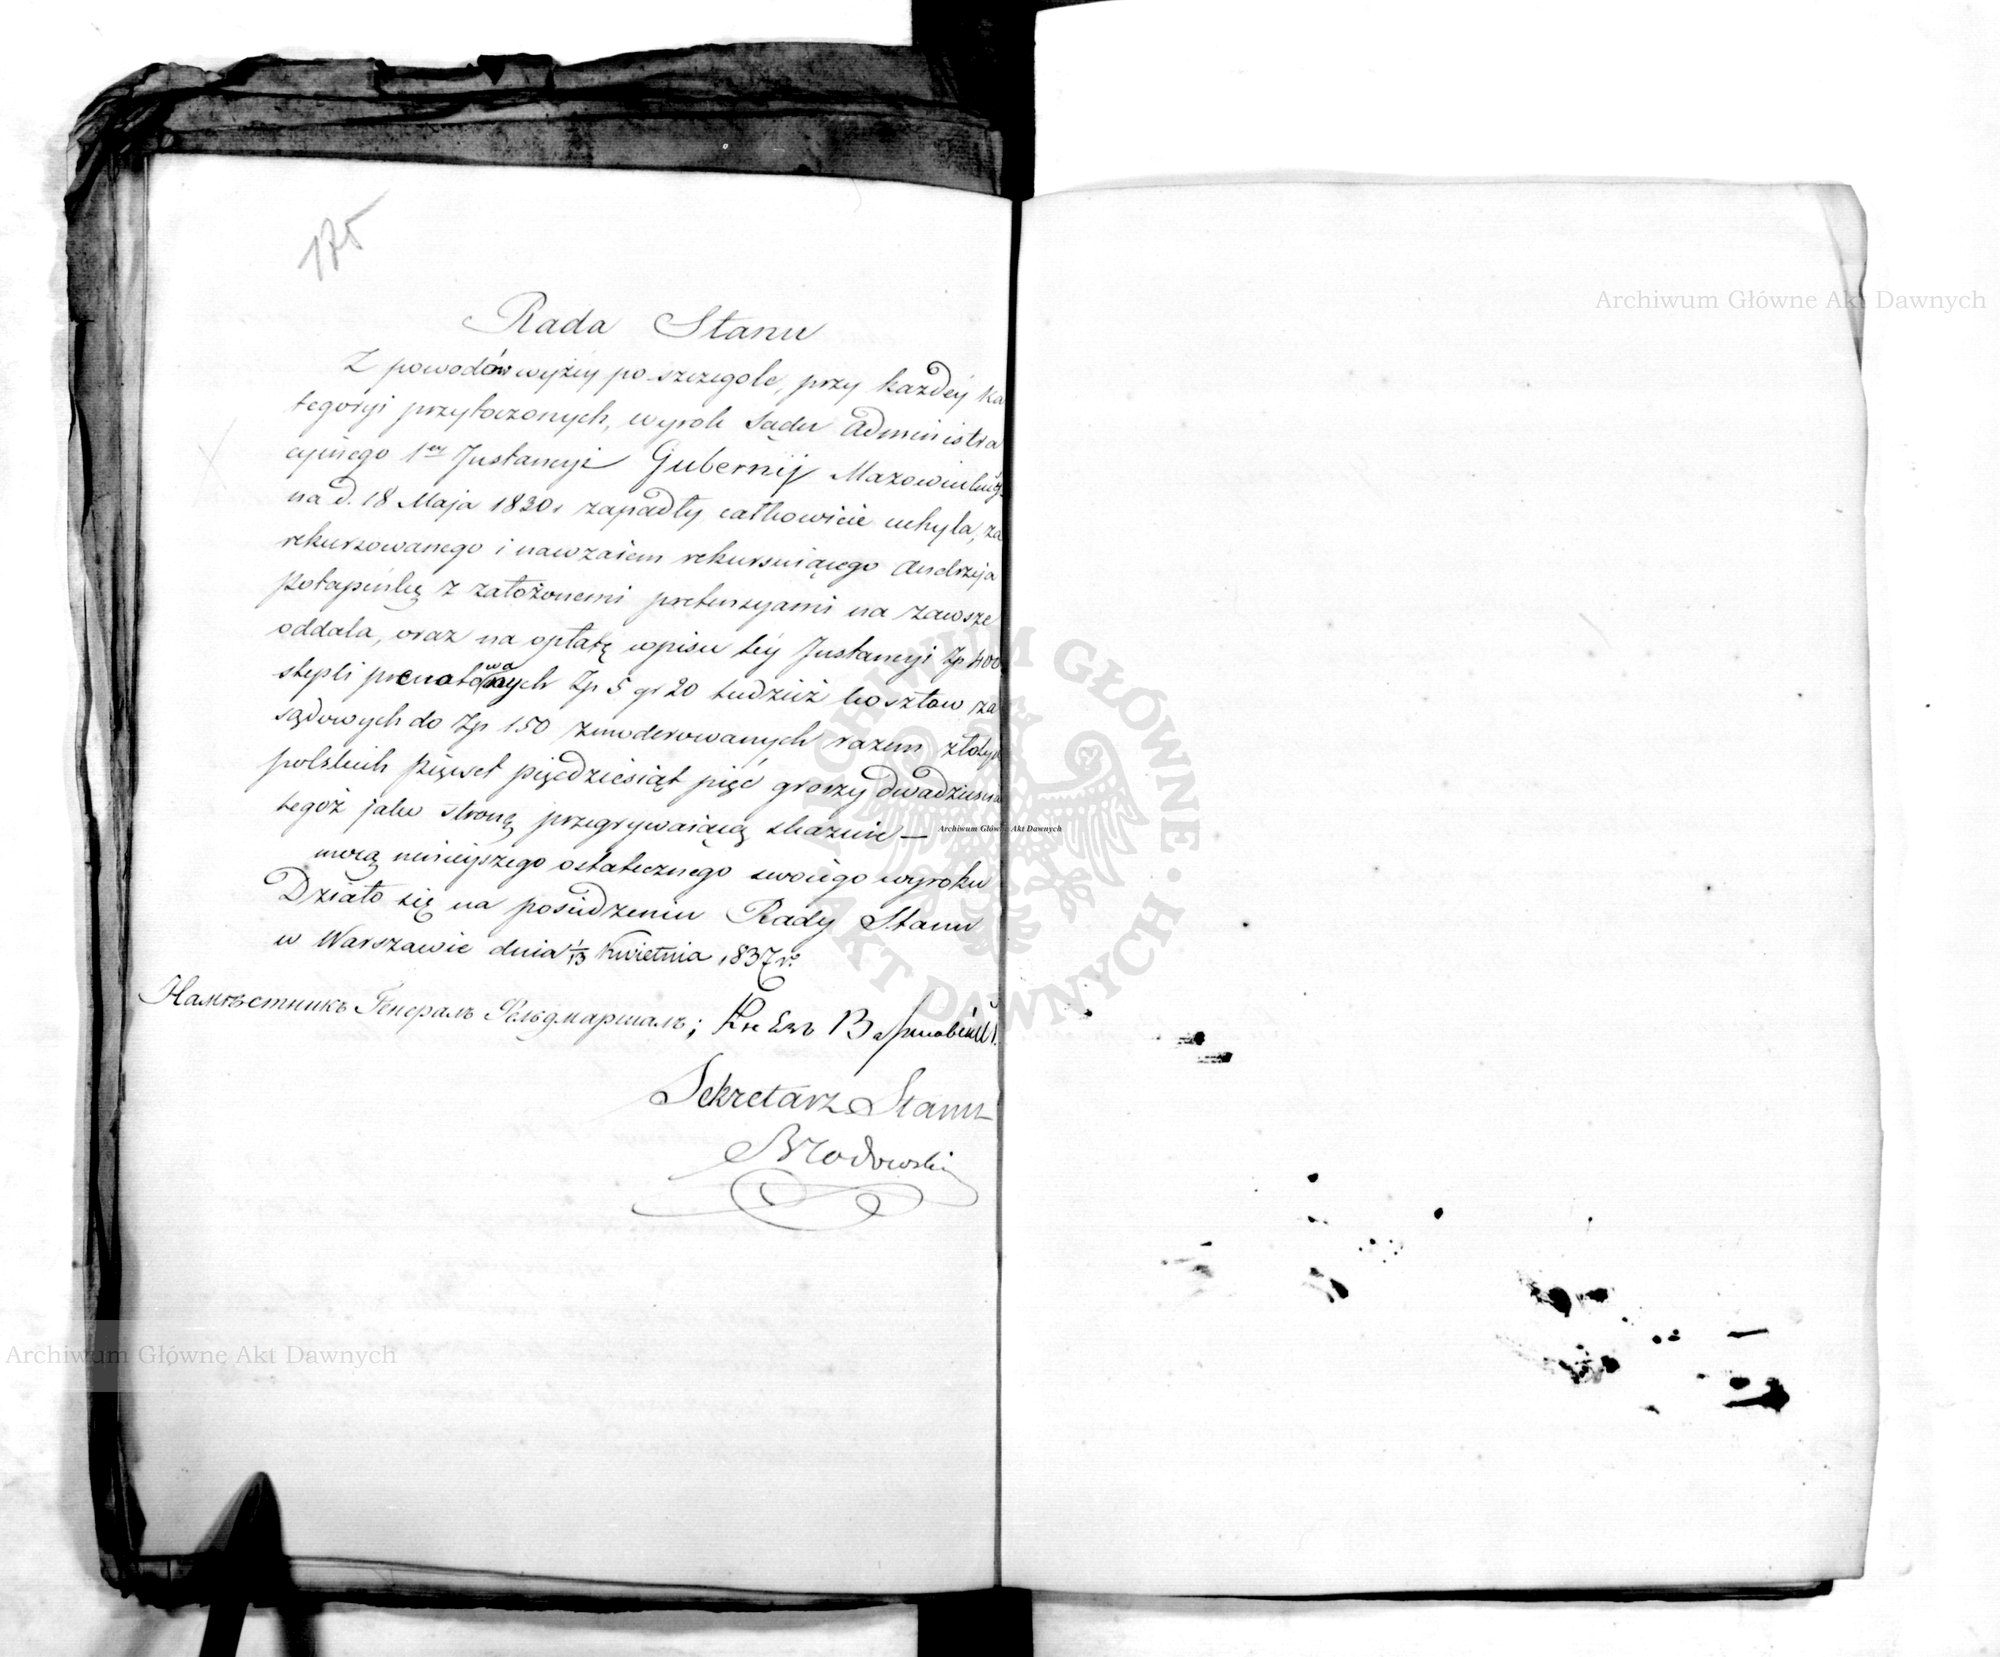 175
Rada Stanu
Z powodów wyżéy po szczegole, przy każdéy ka
tegoryi przytoczonych, wyrok Sądu Administra
cyinego 1ey Instancyi Gubernij Mazowieckiéy
na d. 18 Maja 1830 r zapadły całkowicie uchyla, za
rekursowanego i nawzaiem rekursuiącego Andrzeja
Potapińskę z założonemi pretensyami na zawsze
oddala, oraz na opłatę wpisu téy Instancyi Zp 400
stępli prenotowanych Zp 5 gr 20 tudzież kosztow za
sądowych do Zp 150 zmoderowanych razem złotych
polskich Pięćset pięćdziesiąt pięć groszy dwadzieścia
tegoż jako stronę przegrywaiącą skazuie —
mocą ninieyszego ostatecznego swoiego wyroku
Działo się na posiedzeniu Rady Stanu
w Warszawie dnia 1/13 Kwietnia 1837 r.
Намѣстникъ Генералъ Фельдмаршалъ; Князь Варшавскій.
Sekretarz Stanu
Brodowski
Archiwum Główne Akt Dawnych
Archiwum Główne Akt Dawnych
Archiwum Główne Akt Dawnych
ARCHIWUM GŁÓWNE · AKT DAWNYCH ·